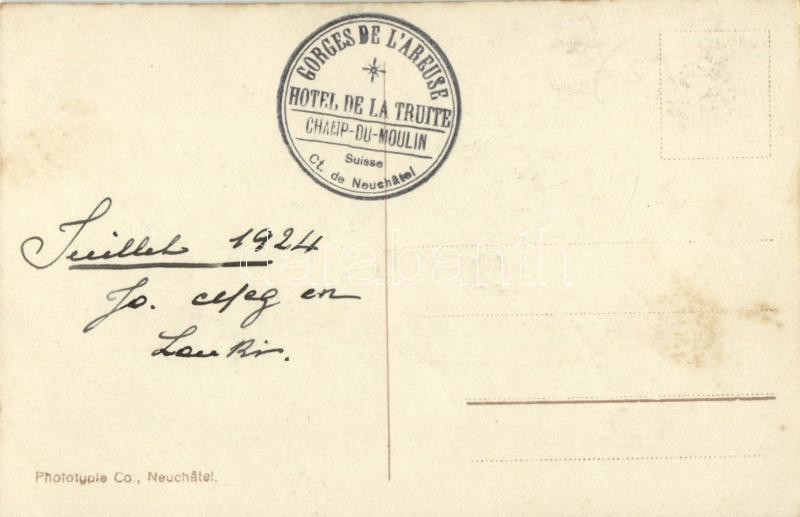 GORGES DE L'AREUSE
HOTEL DE LA TRUITE
CHAMP-DU-MOULIN
Suisse
Ct. de Neuchâtel
Juillet 1924
Jo. en
darabanth
Phototypie Co., Neuchâtel.